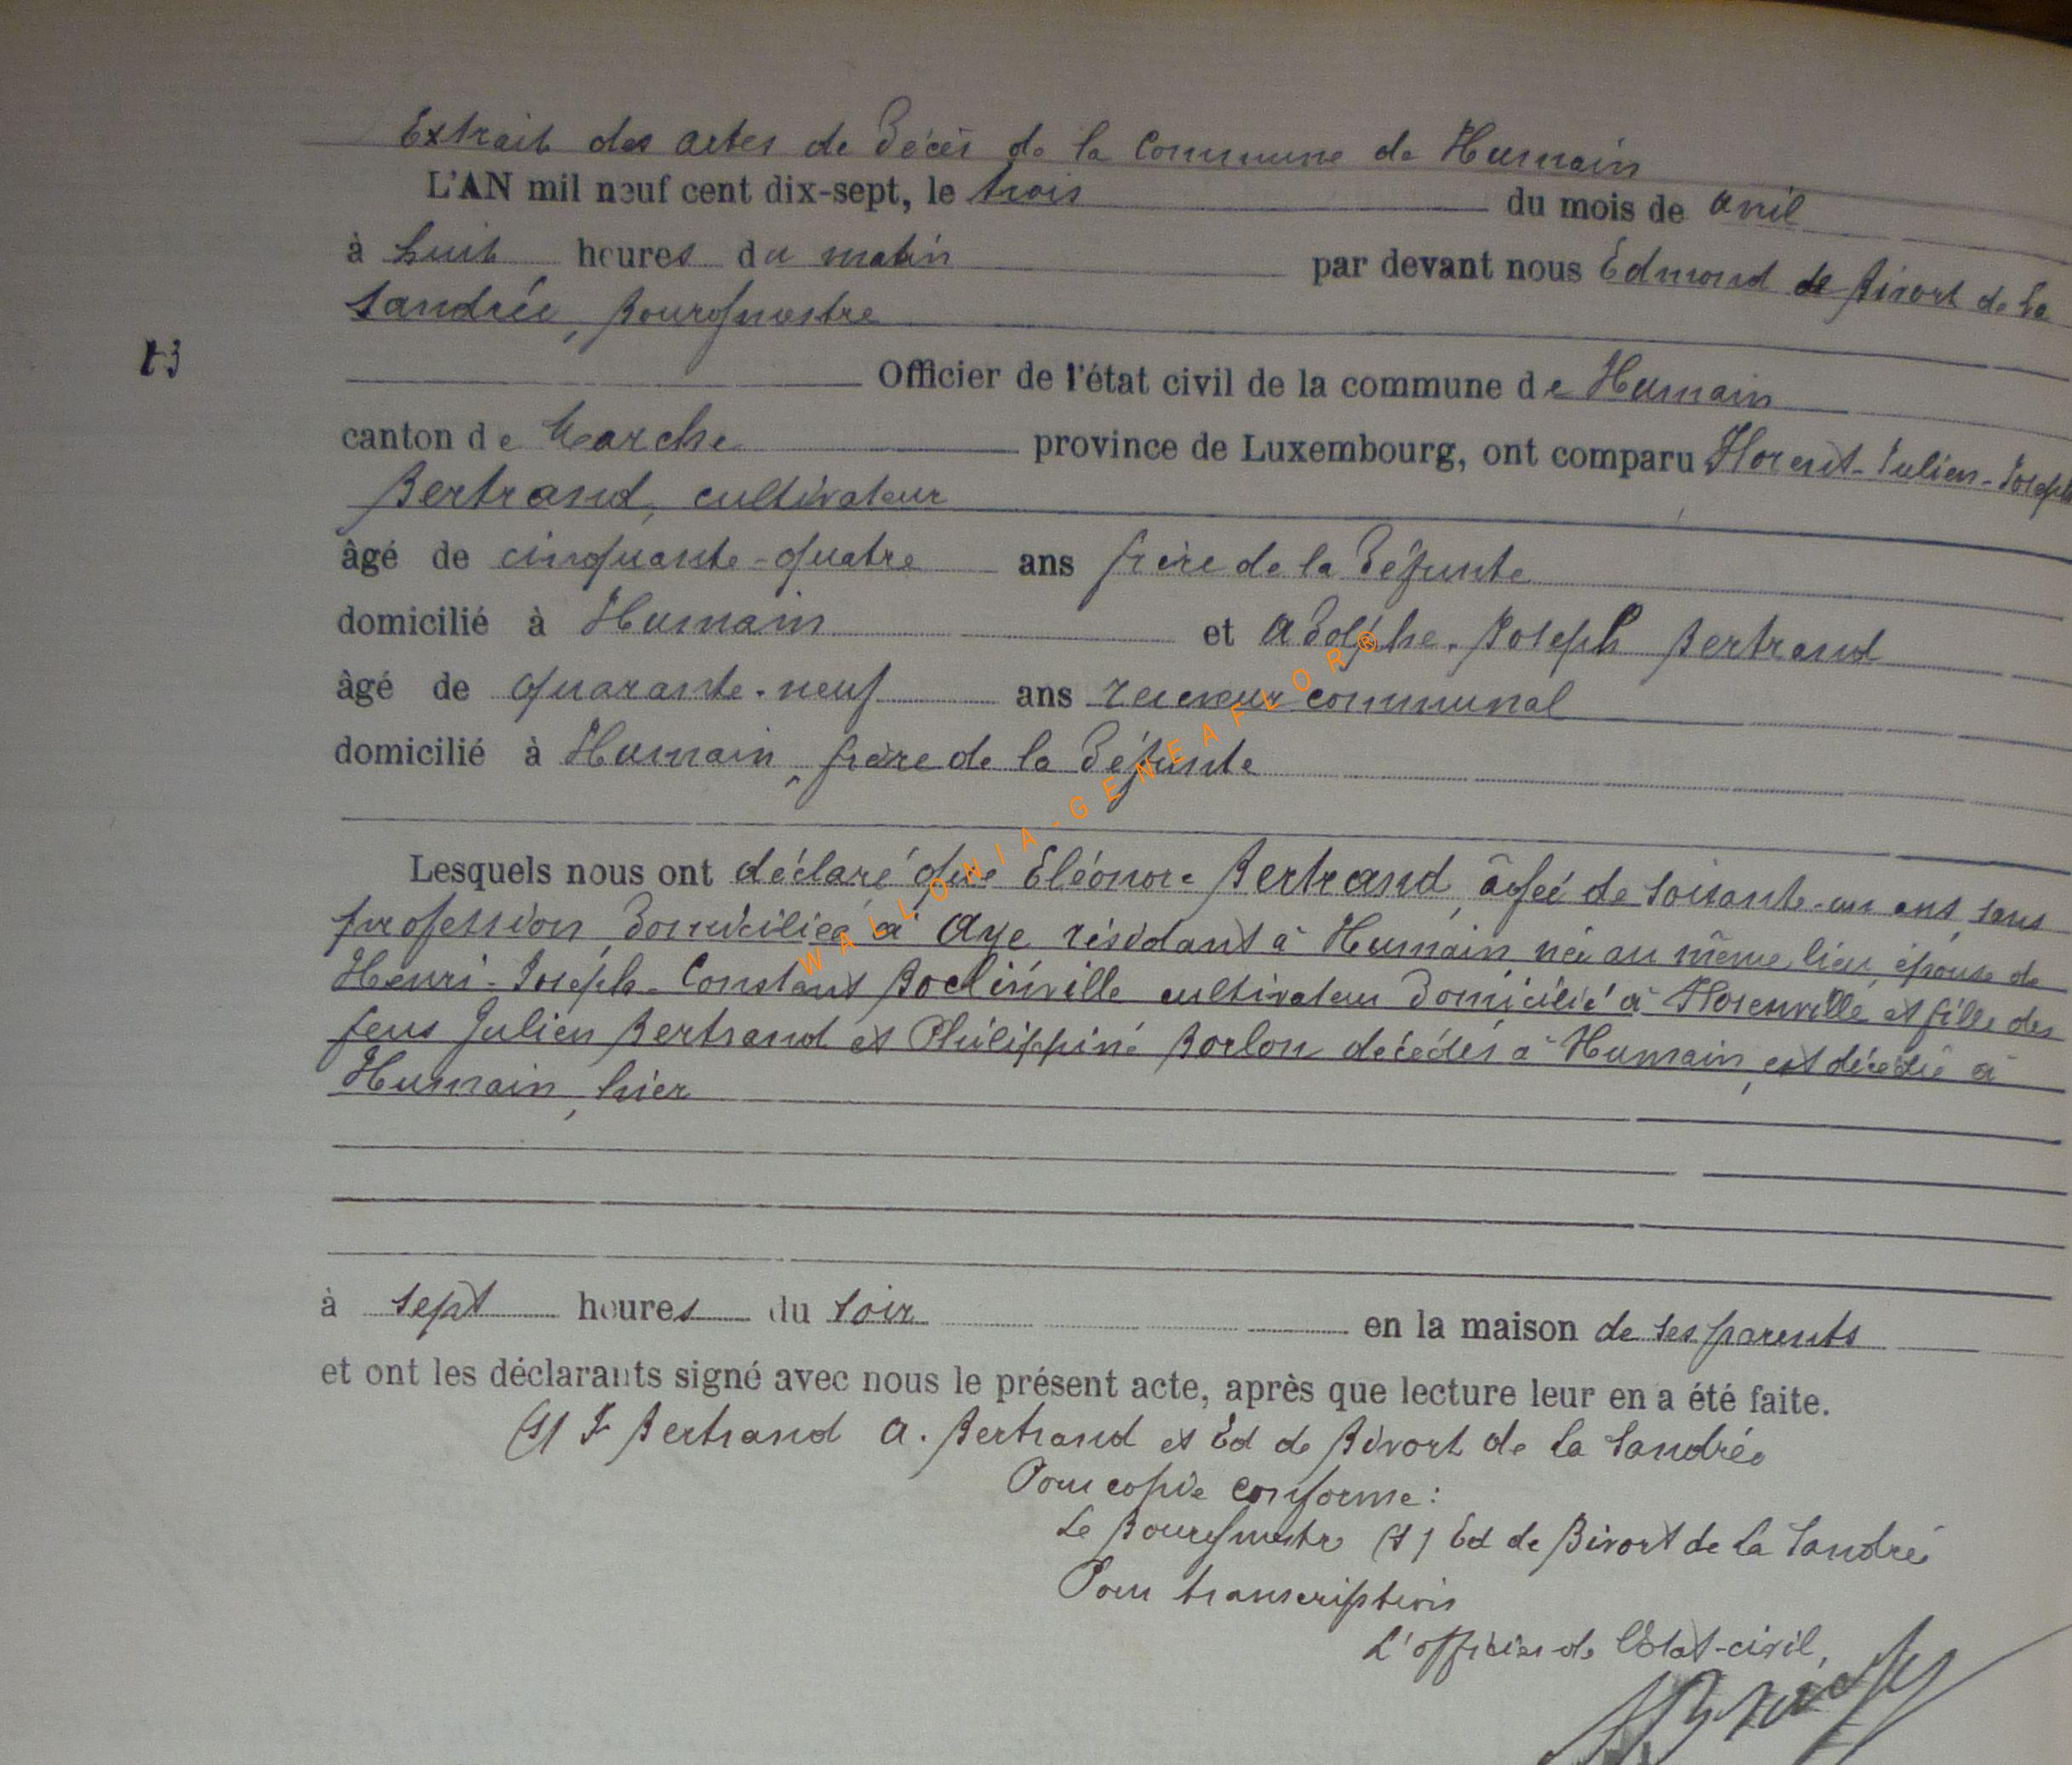 Extrait des actes de décès de la Commune de Humain
L'AN mil neuf cent dix-sept, le trois du mois de avril
à huit heures du matin par devant nous Edmond de Bivort de La
Saudrée, Bourgmestre
13
Officier de l'état civil de la commune de Humain
canton de Marche province de Luxembourg, ont comparu Florent-Julien-Joseph
Bertrand, cultivateur
âgé de cinquante-quatre ans frère de la défunte
domicilié à Humain et Adolphe-Joseph Bertrand
âgé de quarante-neuf ans receveur communal
domicilié à Humain, frère de la défunte
Lesquels nous ont déclaré que Eléonore Bertrand, âgée de soixante-un ans, sans
profession, domiciliée à Aye résidant à Humain née au même lieu, épouse de
Henri-Joseph-Constant Boclinville cultivateur domicilié à et fille des
feus Julien Bertrand et Philippine Borlon décédés à Humain, est décédée à
Humain, hier
à sept heures du soir en la maison de ses parents
et ont les déclarants signé avec nous le présent acte, après que lecture leur en a été faite.
(s) F Bertrand A. Bertrand et Ed de Bivort de La Saudrée
Pour copie conforme :
Le Bourgmestre (s) Ed de Bivort de La Saudrée
Pour transcription
L'officier de l'Etat-civil,
WALLONIA-GENEAFLOR®